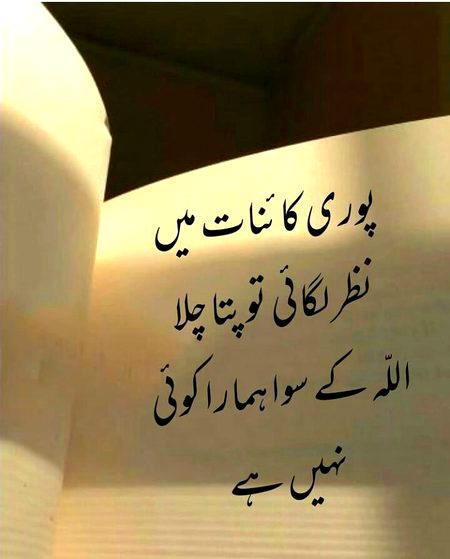 پوری کائنات میں
نظر لگائی تو پتا چلا
اللّہ کے سوا ہمارا کوئی
نہیں ہے